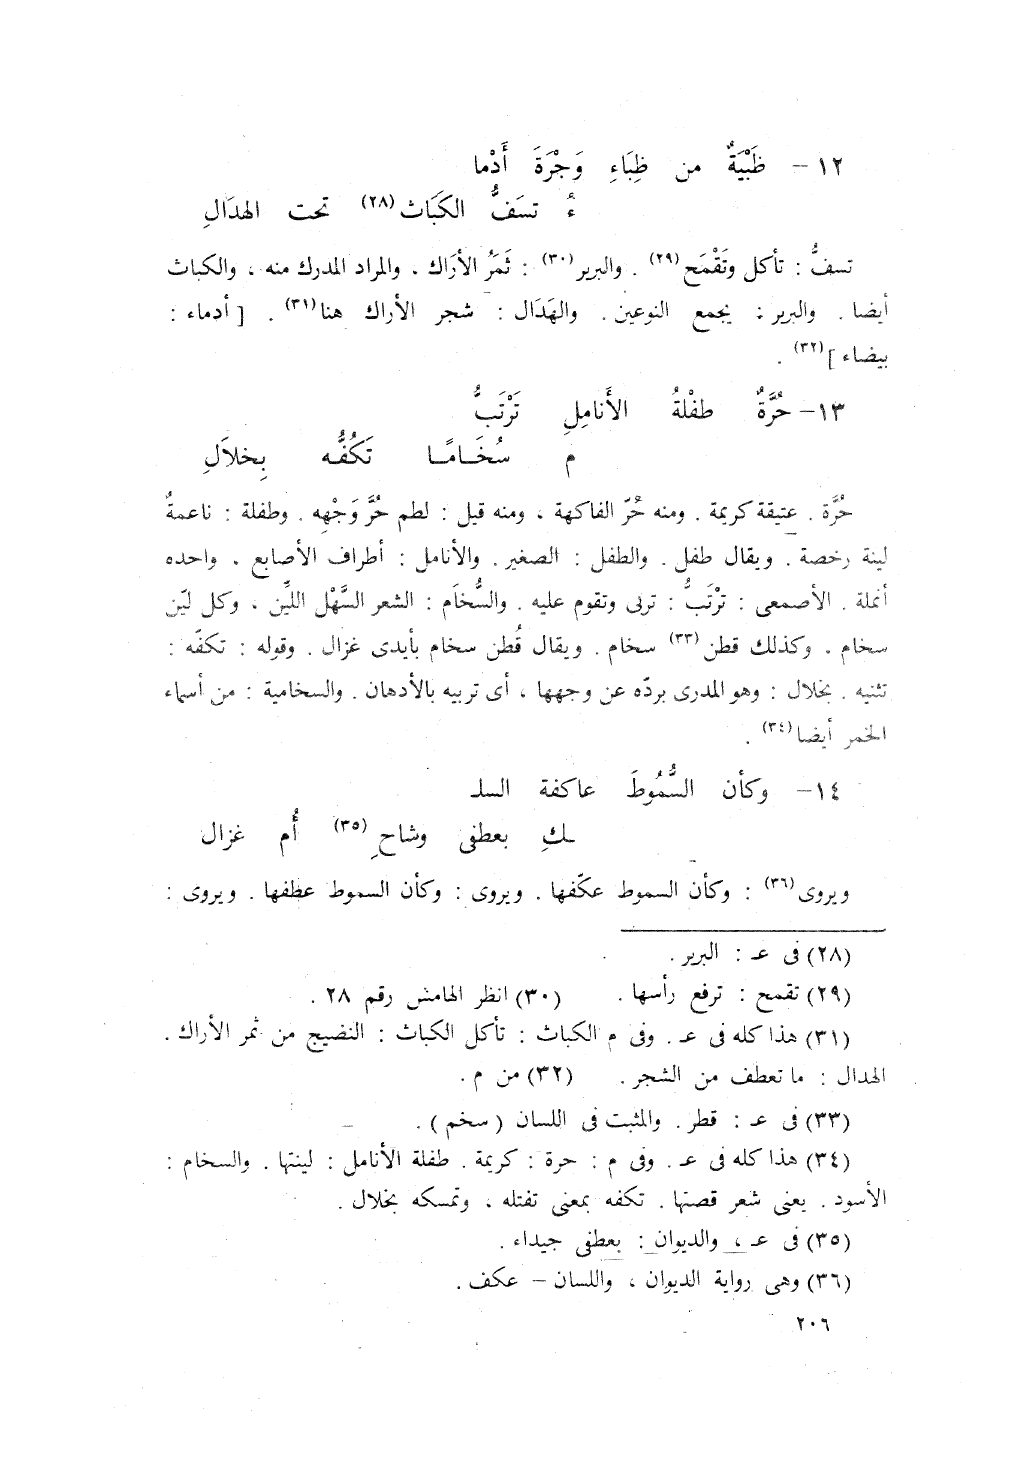 ١٢ – ظَبْيَةٌ من ظِبَاءِ وَجْرَةَ أَدْما
ءُ تسَفُّ الكَبَاث(٢٨) تحت الهدَالِ
تسفُّ : تأكل وتَقْمَح(٢٩) . والبرير(٣٠) : ثَمَرُ الأرَاك . والمراد المدرك منه ، والكباث
أيضا . والبرير : يجمع النوعين . والهَدَال : شجر الأراك هنا(٣١) . [ أدماء :
بيضاء ](٣٢) .
١٣ – حُرَّةٌ طفْلةُ الأَنامِلِ تَرْتَبُّ
م سُخَـامًـا تَكُفُّه بِخلاَلِ
حُرَّة . عتيقة كريمة . ومنه حُرّ الفاكهة ، ومنه قيل : لطم حُرَّ وَجْهِه . وطفلة : ناعمةٌ
لينة رخصة . ويقال طفل . والطفل : الصغير . والأنامل : أطراف الأصابع . واحده
أنملة . الأصمعى : ترْتَبُّ : تربى وتقوم عليه . والسُّخاَم : الشعر السَّهْل الليِّن ، وكل ليّن
سخام . وكذلك قطن(٣٣) سخام . ويقال قُطن سخام بأيدى غزال . وقوله : تكفّه :
تثنيه . بخلال : وهو المدرى بردّه عن وجهها ، أى تربيه بالأدهان . والسخامية : من أسماء
الخمر أيضا(٣٤) .
١٤ – وكأن السُّمُوطَ عاكفة السلـ
ـكِ بعطفى وشاحِ(٣٥) أُم غزال
ويروى(٣٦) : وكأن السموط عكّفها . ويروى : وكأن السموط عطفها . ويروى :
(٢٨) فى عـ : البرير .
(٢٩) تقمح : ترفع رأسها . (٣٠) انظر الهامش رقم ٢٨ .
(٣١) هذا كله فى عـ . وفى م الكباث : تأكل الكباث : النضيج من ثمر الأراك .
الهدال : ما تعطف من الشجر . (٣٢) من م .
(٣٣) فى عـ : قطر . والمثبت فى اللسان ( سخم ) .
(٣٤) هذا كله فى عـ . وفى م : حرة : كريمة . طفلة الأنامل : لينتها . والسخام :
الأسود . يعنى شعر قصتها . تكفه بمعنى تفتله ، وتمسكه بخلال .
(٣٥) فى عـ ، والديوان : بعطفى جيداء .
(٣٦) وهى رواية الديوان ، واللسان – عكف .
٢٠٦